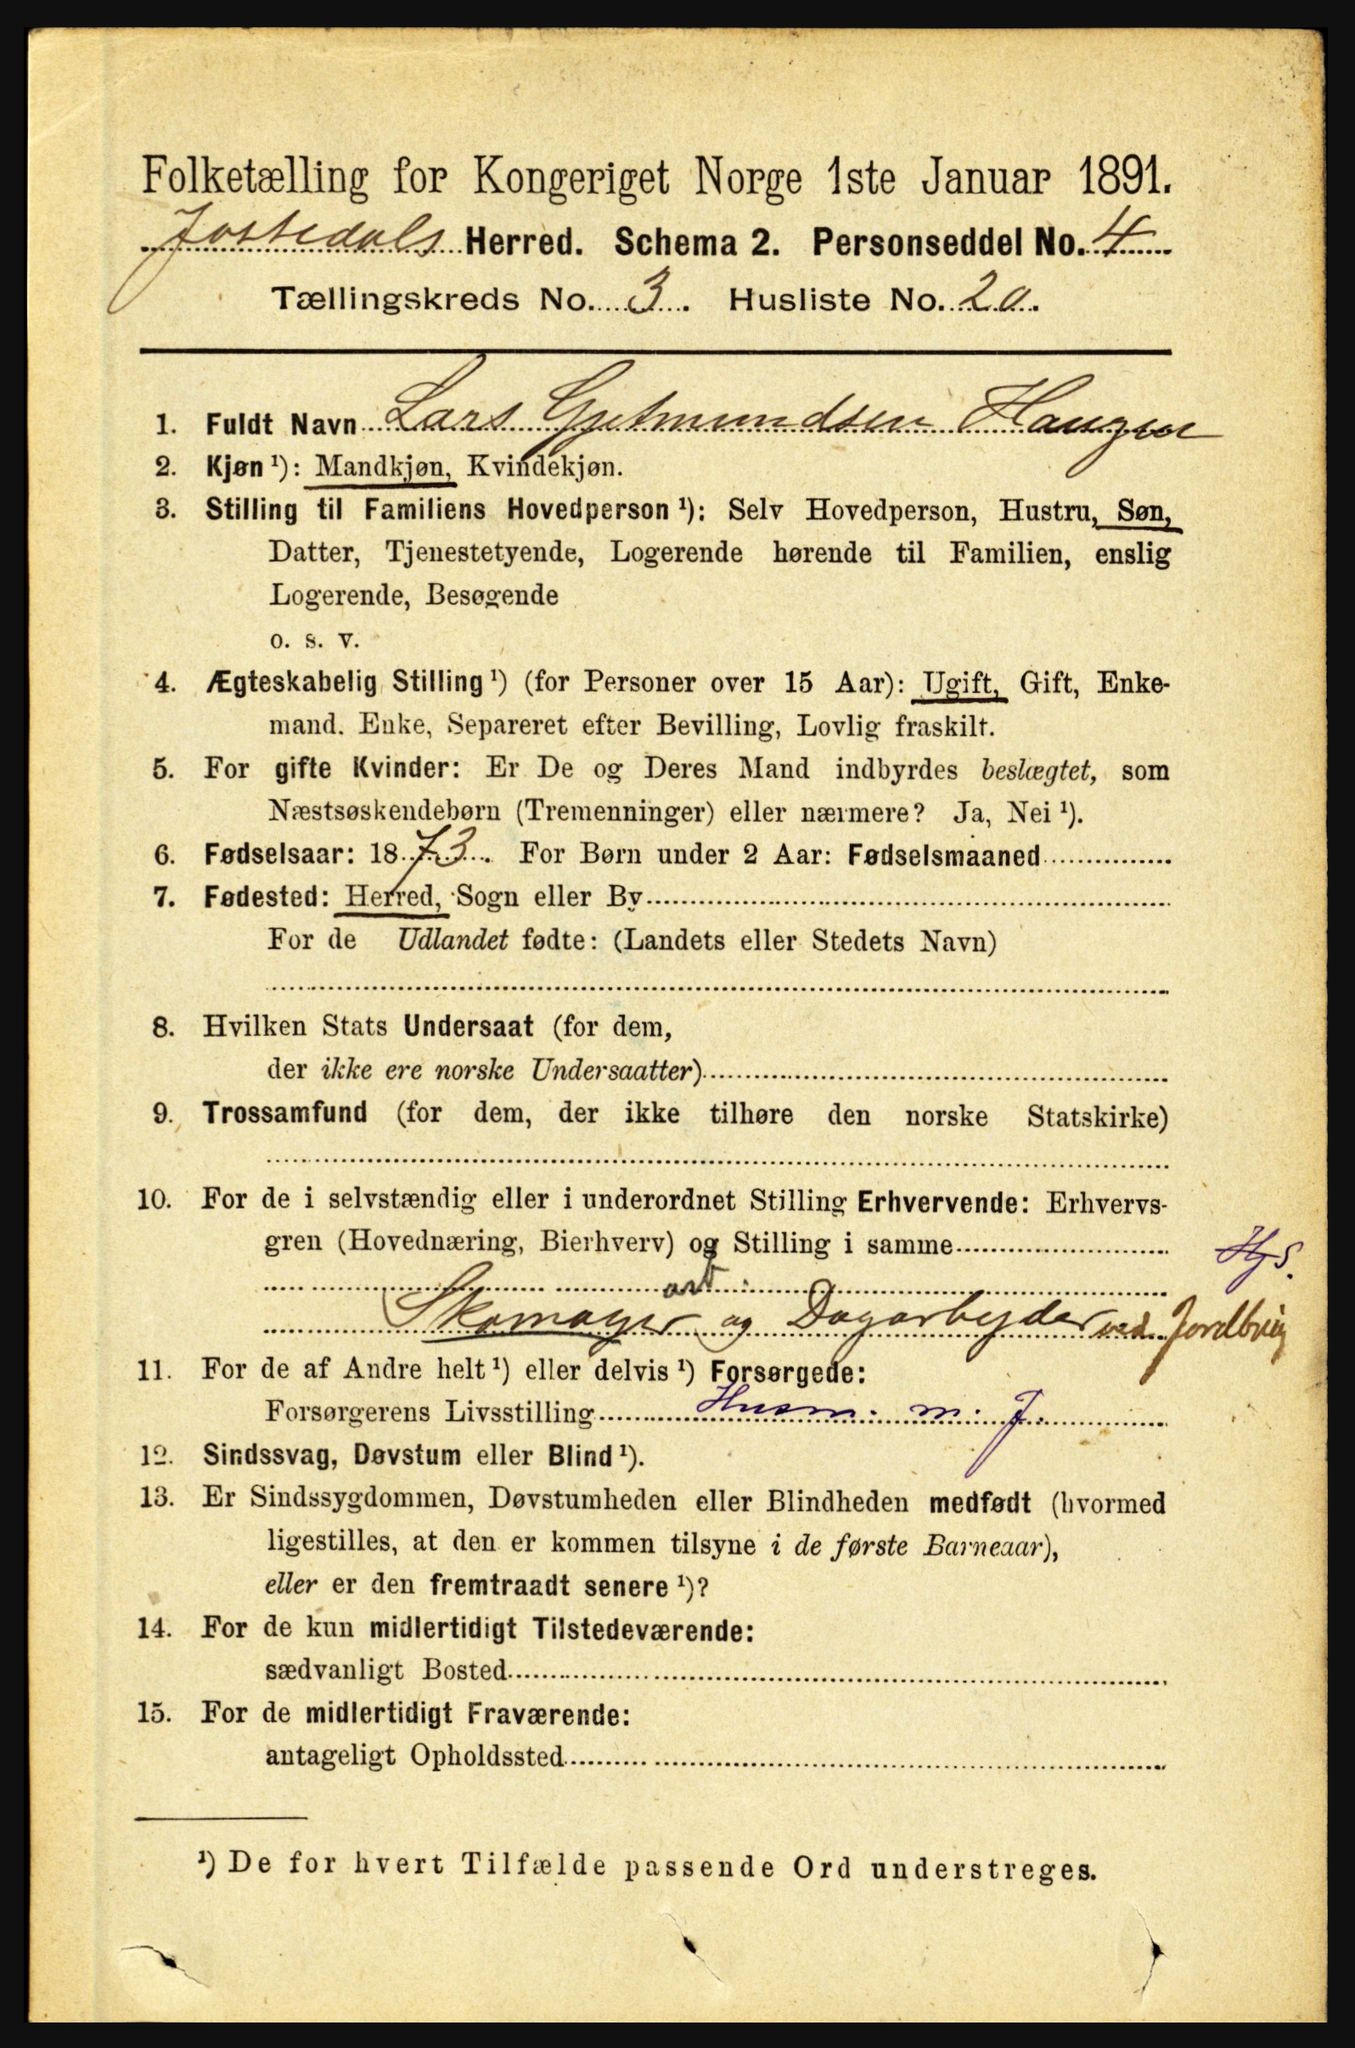 Folketælling for Kongeriget Norge 1ste Januar 1891.
Jostedals Herred. Schema 2. Personseddel No. 4
Tællingskreds No. 3. Husliste No. 20.
1. Fuldt Navn Lars Gjetmundsen Haugen
2. Kjøn ¹): Mandkjøn, Kvindekjøn.
3. Stilling til Familiens Hovedperson ¹): Selv Hovedperson, Hustru, Søn,
Datter, Tjenestetyende, Logerende hørende til Familien, enslig
Logerende, Besøgende
o. s. v.
4. Ægteskabelig Stilling ¹) (for Personer over 15 Aar): Ugift, Gift, Enke-
mand. Enke, Separeret efter Bevilling, Lovlig fraskilt.
5. For gifte Kvinder: Er De og Deres Mand indbyrdes beslægtet, som
Næstsøskendebørn (Tremenninger) eller nærmere? Ja, Nei ¹).
6. Fødselsaar: 1873. For Børn under 2 Aar: Fødselsmaaned
7. Fødested: Herred, Sogn eller By
For de Udlandet fødte: (Landets eller Stedets Navn)
8. Hvilken Stats Undersaat (for dem,
der ikke ere norske Undersaatter)
9. Trossamfund (for dem, der ikke tilhøre den norske Statskirke)
10. For de i selvstændig eller i underordnet Stilling Erhvervende: Erhvervs-
gren (Hovednæring, Bierhverv) og Stilling i samme
Hjs.
arb.
Skomager og Dagarbeyder ved Jordbrug
11. For de af Andre helt ¹) eller delvis ¹) Forsørgede:
Forsørgerens Livsstilling Husm. m. J.
12. Sindssvag, Døvstum eller Blind ¹).
13. Er Sindssygdommen, Døvstumheden eller Blindheden medfødt (hvormed
ligestilles, at den er kommen tilsyne i de første Barneaar),
eller er den fremtraadt senere ¹)?
14. For de kun midlertidigt Tilstedeværende:
sædvanligt Bosted
15. For de midlertidigt Fraværende:
antageligt Opholdssted
¹) De for hvert Tilfælde passende Ord understreges.